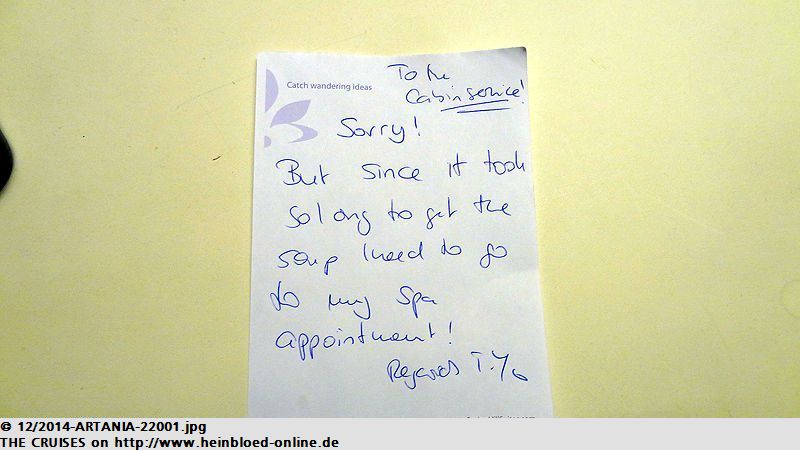 Catch wandering ideas
To the
Cabinservice!
Sorry!
But since it took
so long to get the
soup I need to go
to my Spa
appointment!
Regards T.
© 12/2014-ARTANIA-22001.jpg
THE CRUISES on http://www.heinbloed-online.de